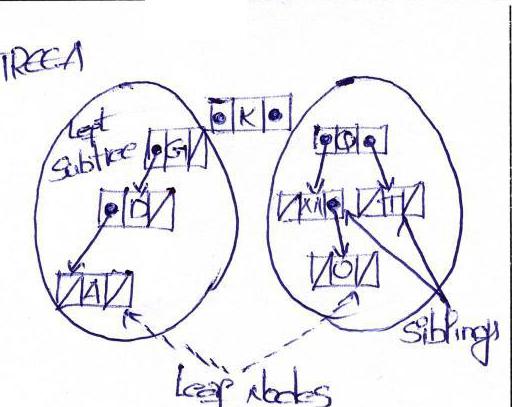 TREE A
Left
Subtree
K
G
Q
D
M
T
A
O
Siblings
Leaf Nodes